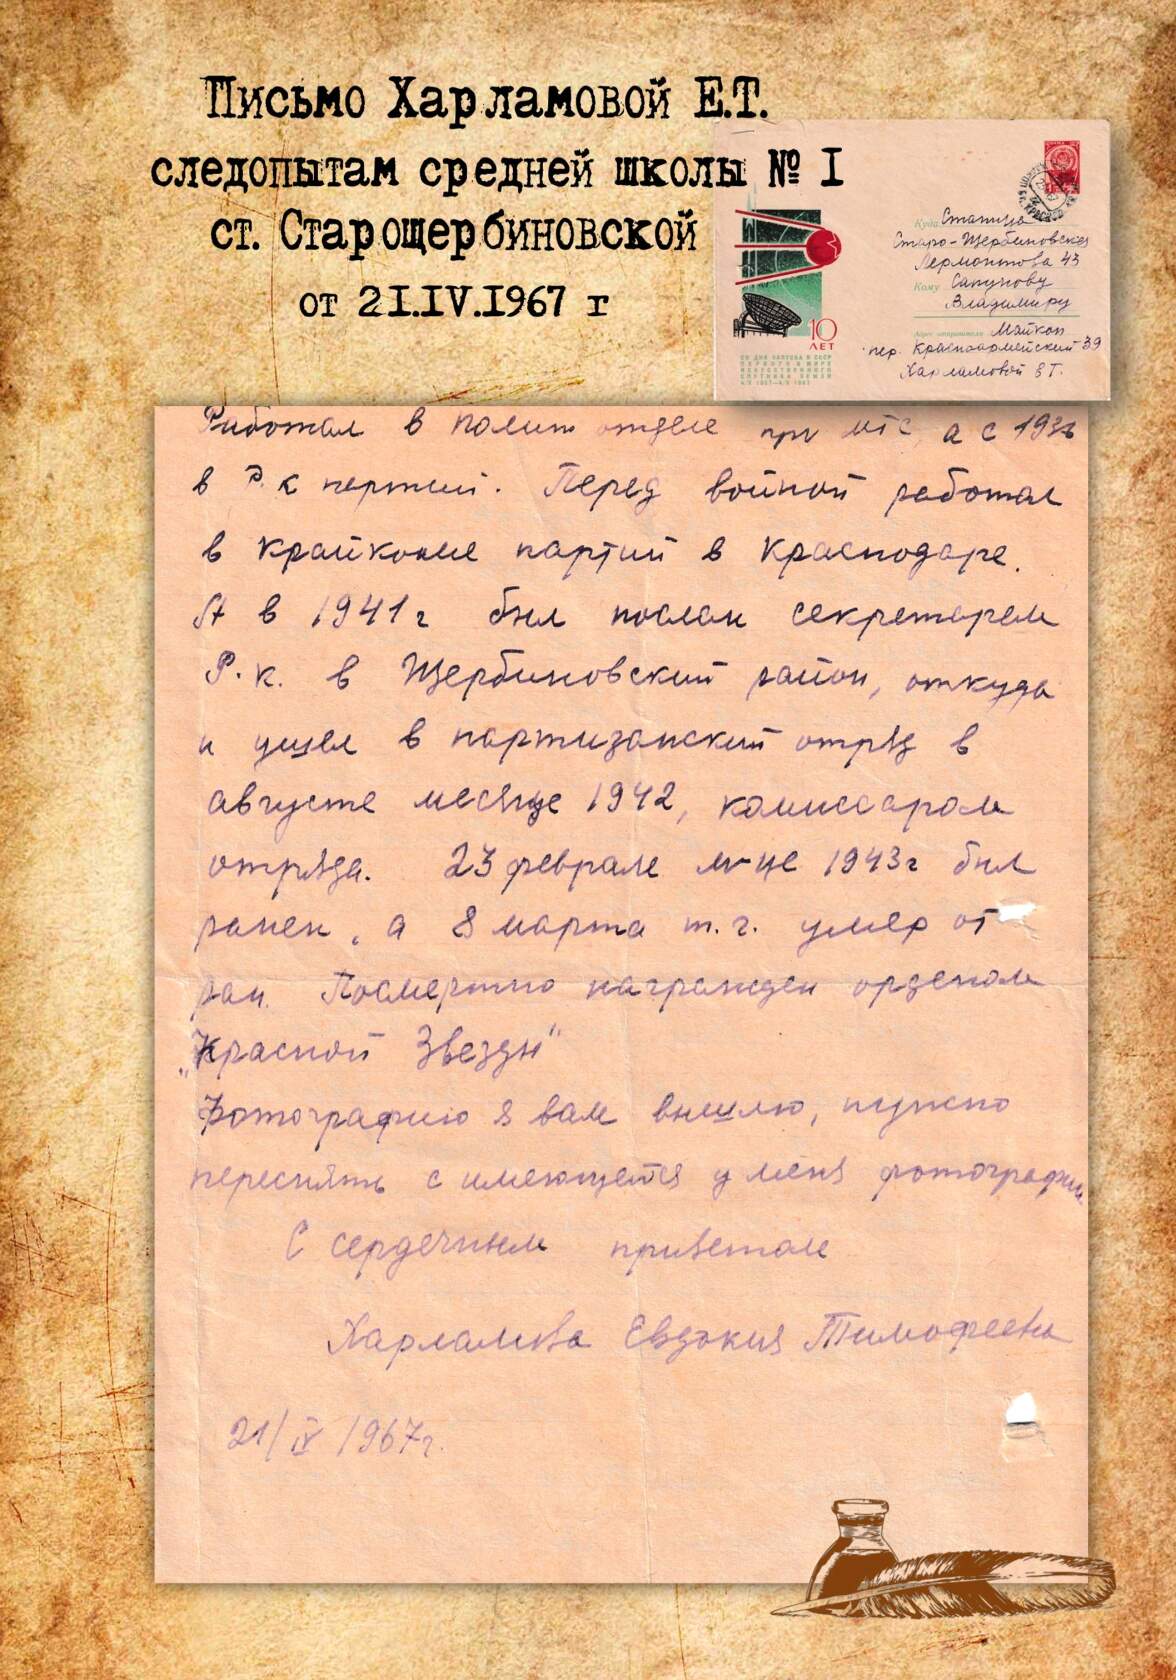 Письмо Харламовой Е.Т.
следопытам средней школы № I
ст. Старощербиновской
от 21.IV.1967 г
Куда Станица
Старо-Щербиновская
Лермонтова 43
Кому Сапунову
Владимиру
Адрес отправителя Майкоп
пер. Красноармейский 39
Харламовой Е Т.
10
ЛЕТ
СО ДНЯ ЗАПУСКА В СССР
ПЕРВОГО В МИРЕ
ИСКУССТВЕННОГО
СПУТНИКА ЗЕМЛИ
4/X 1957–4/X 1967
Работал в полит отделе при мтс, а с
в Р.к партий. Перед войной работал
в крайкоме партий в Краснодаре.
А в 1941 г был послан секретарем
Р.к. в Щербиновский район, откуда
и ушел в партизанский отряд в
августе месяце 1942, комиссаром
отряда. 23 феврале м-це 1943 г был
ранен, а 8 марта т.г. умер от
ран. Посмертно награжден орденом
„Красной Звезды“
Фотографию я вам вышлю, нужно
переснять с имеющейся у меня фотографии
С сердечным приветом
Харламова Евдокия Тимофеевна
21/IV 1967г.